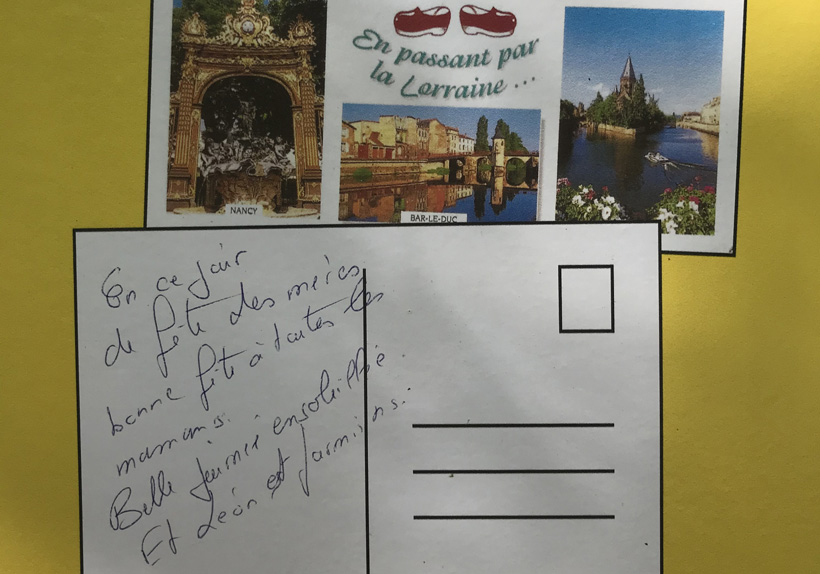 En passant par
la Lorraine ...
NANCY
BAR-LE-DUC
En ce jour
de fête des mères
bonne fête à toutes les
mamans.
Belle journée ensoleillée.
Et Léon et